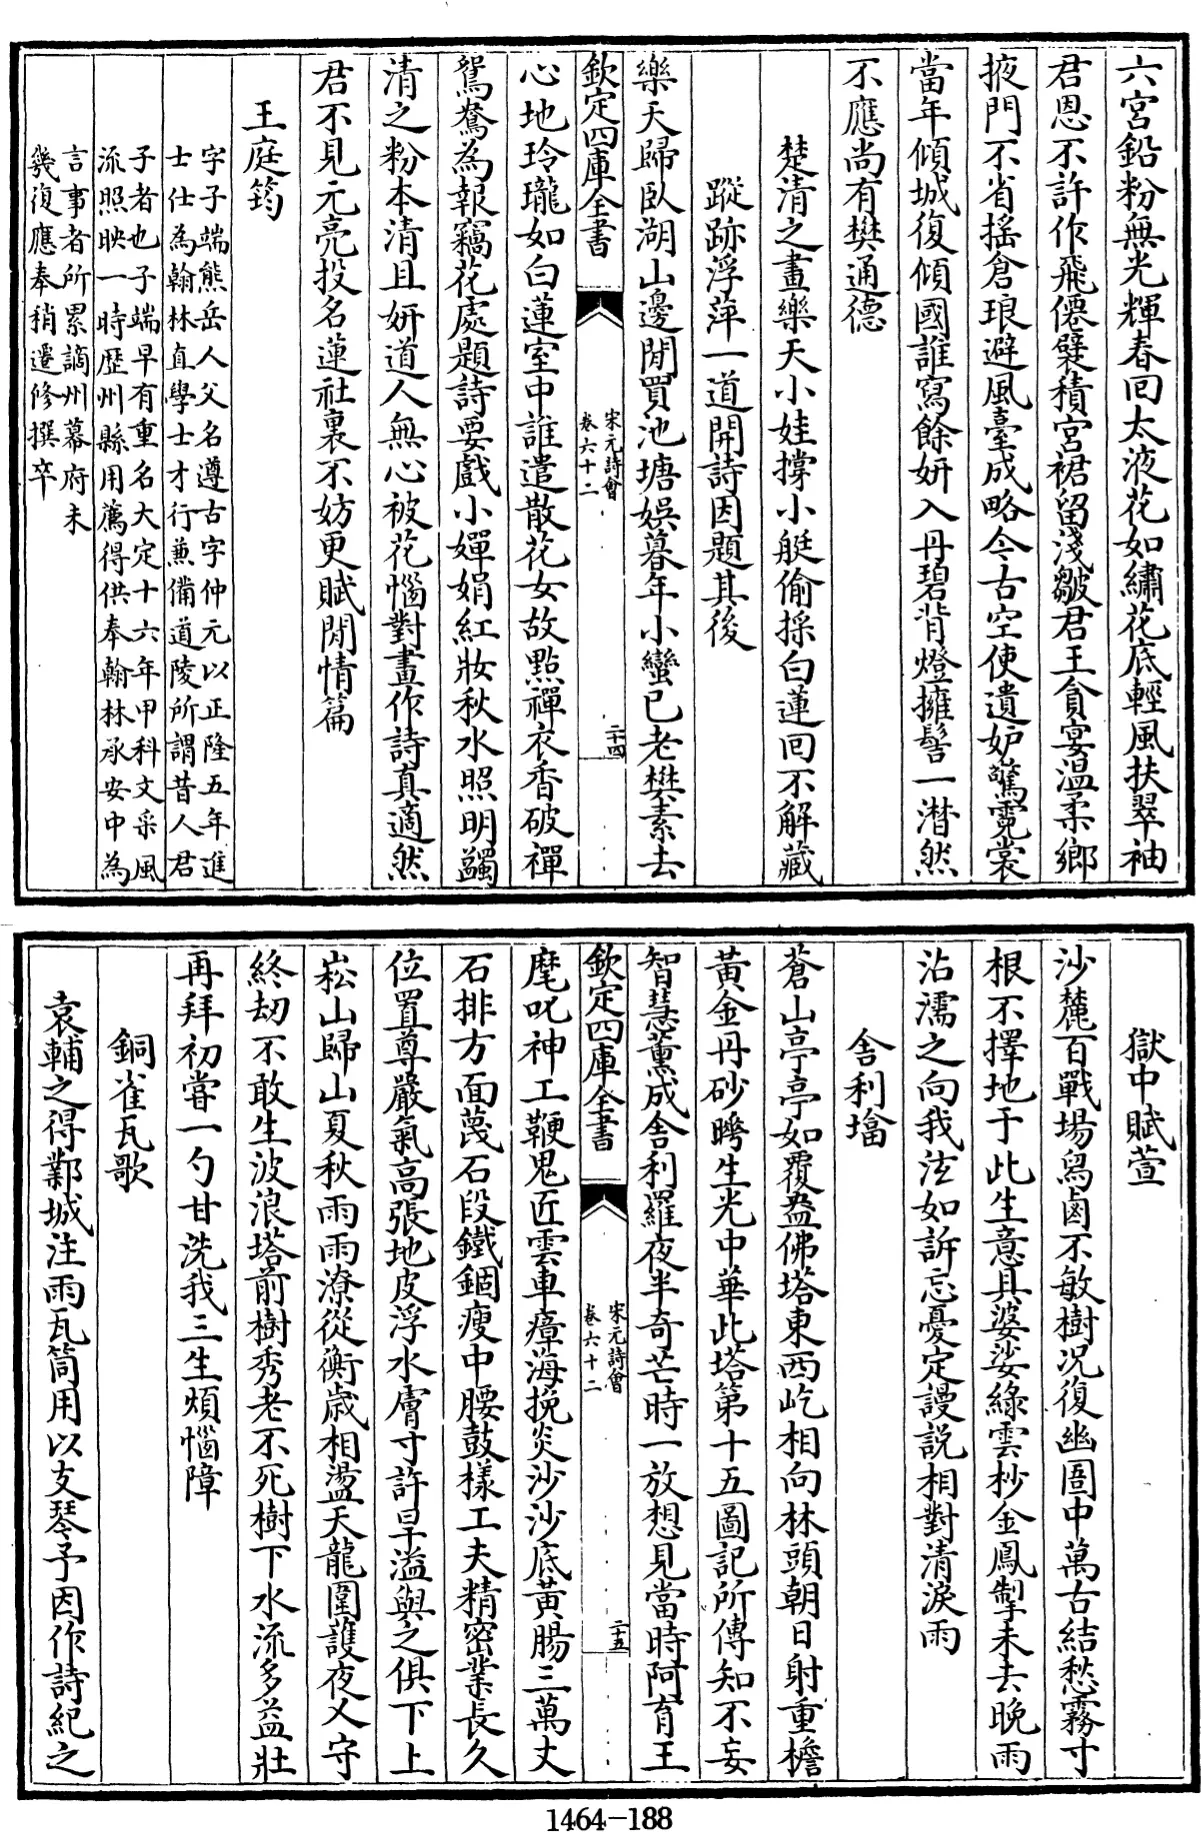 六宮鉛粉無光輝春回太液花如繡花底輕風扶翠袖
君恩不許作飛僊襞積宮裙留淺皺君王貪宴温柔鄉
掖門不省搖倉琅避風臺成略今古空使遺妒驚霓裳
當年傾城復傾國誰寫餘妍入丹碧背燈擁髻一潸然
不應尚有樊通德
楚清之畫樂天小娃撐小艇偷採白蓮回不解藏
蹤跡浮萍一道開詩因題其後
樂天歸臥湖山邊閒買池塘娛暮年小蠻已老樊素去
欽定四庫全書
宋元詩會
卷六十二
二十四
心地玲瓏如白蓮室中誰遣散花女故點禪衣香破禪
鴛鴦為報竊花處題詩要戲小嬋娟紅妝秋水照明蠲
清之粉本清且妍道人無心被花惱對畫作詩真適然
君不見元亮投名蓮社裏不妨更賦閒情篇
王庭筠
字子端熊岳人父名遵古字仲元以正隆五年進
士仕為翰林直學士才行兼備道陵所謂昔人君
子者也子端早有重名大定十六年甲科文采風
流照映一時歷州縣用薦得供奉翰林承安中為
言事者所累謫州幕府未
幾復應奉稍遷修撰卒
獄中賦萱
沙麓百戰場舄鹵不敏樹况復幽圄中萬古結愁霧寸
根不擇地于此生意具婆娑綠雲杪金鳳掣未去晚雨
沾濡之向我泫如訴忘憂定謾説相對清淚雨
舍利㙮
蒼山亭亭如覆盎佛塔東西屹相向林頭朝日射重檐
黃金丹砂晬生光中華此塔第十五圖記所傳知不妄
智慧薰成舍利羅夜半奇芒時一放想見當時阿育王
欽定四庫全書
宋元詩會
卷六十二
二十五
麾呪神工鞭鬼匠雲車瘴海挽炎沙沙底黃腸三萬丈
石排方面蔑石段鐵錮瘦中腰鼓樣工夫精密業長久
位置尊嚴氣高張地皮浮水膚寸許旱溢與之俱下上
崧山歸山夏秋雨雨潦從衡歳相盪天龍圍護夜乂守
終劫不敢生波浪塔前樹秀老不死樹下水流多益壯
再拜初嘗一勺甘洗我三生煩惱障
銅雀瓦歌
袁輔之得鄴城注雨瓦筒用以支琴予因作詩紀之
1464-188